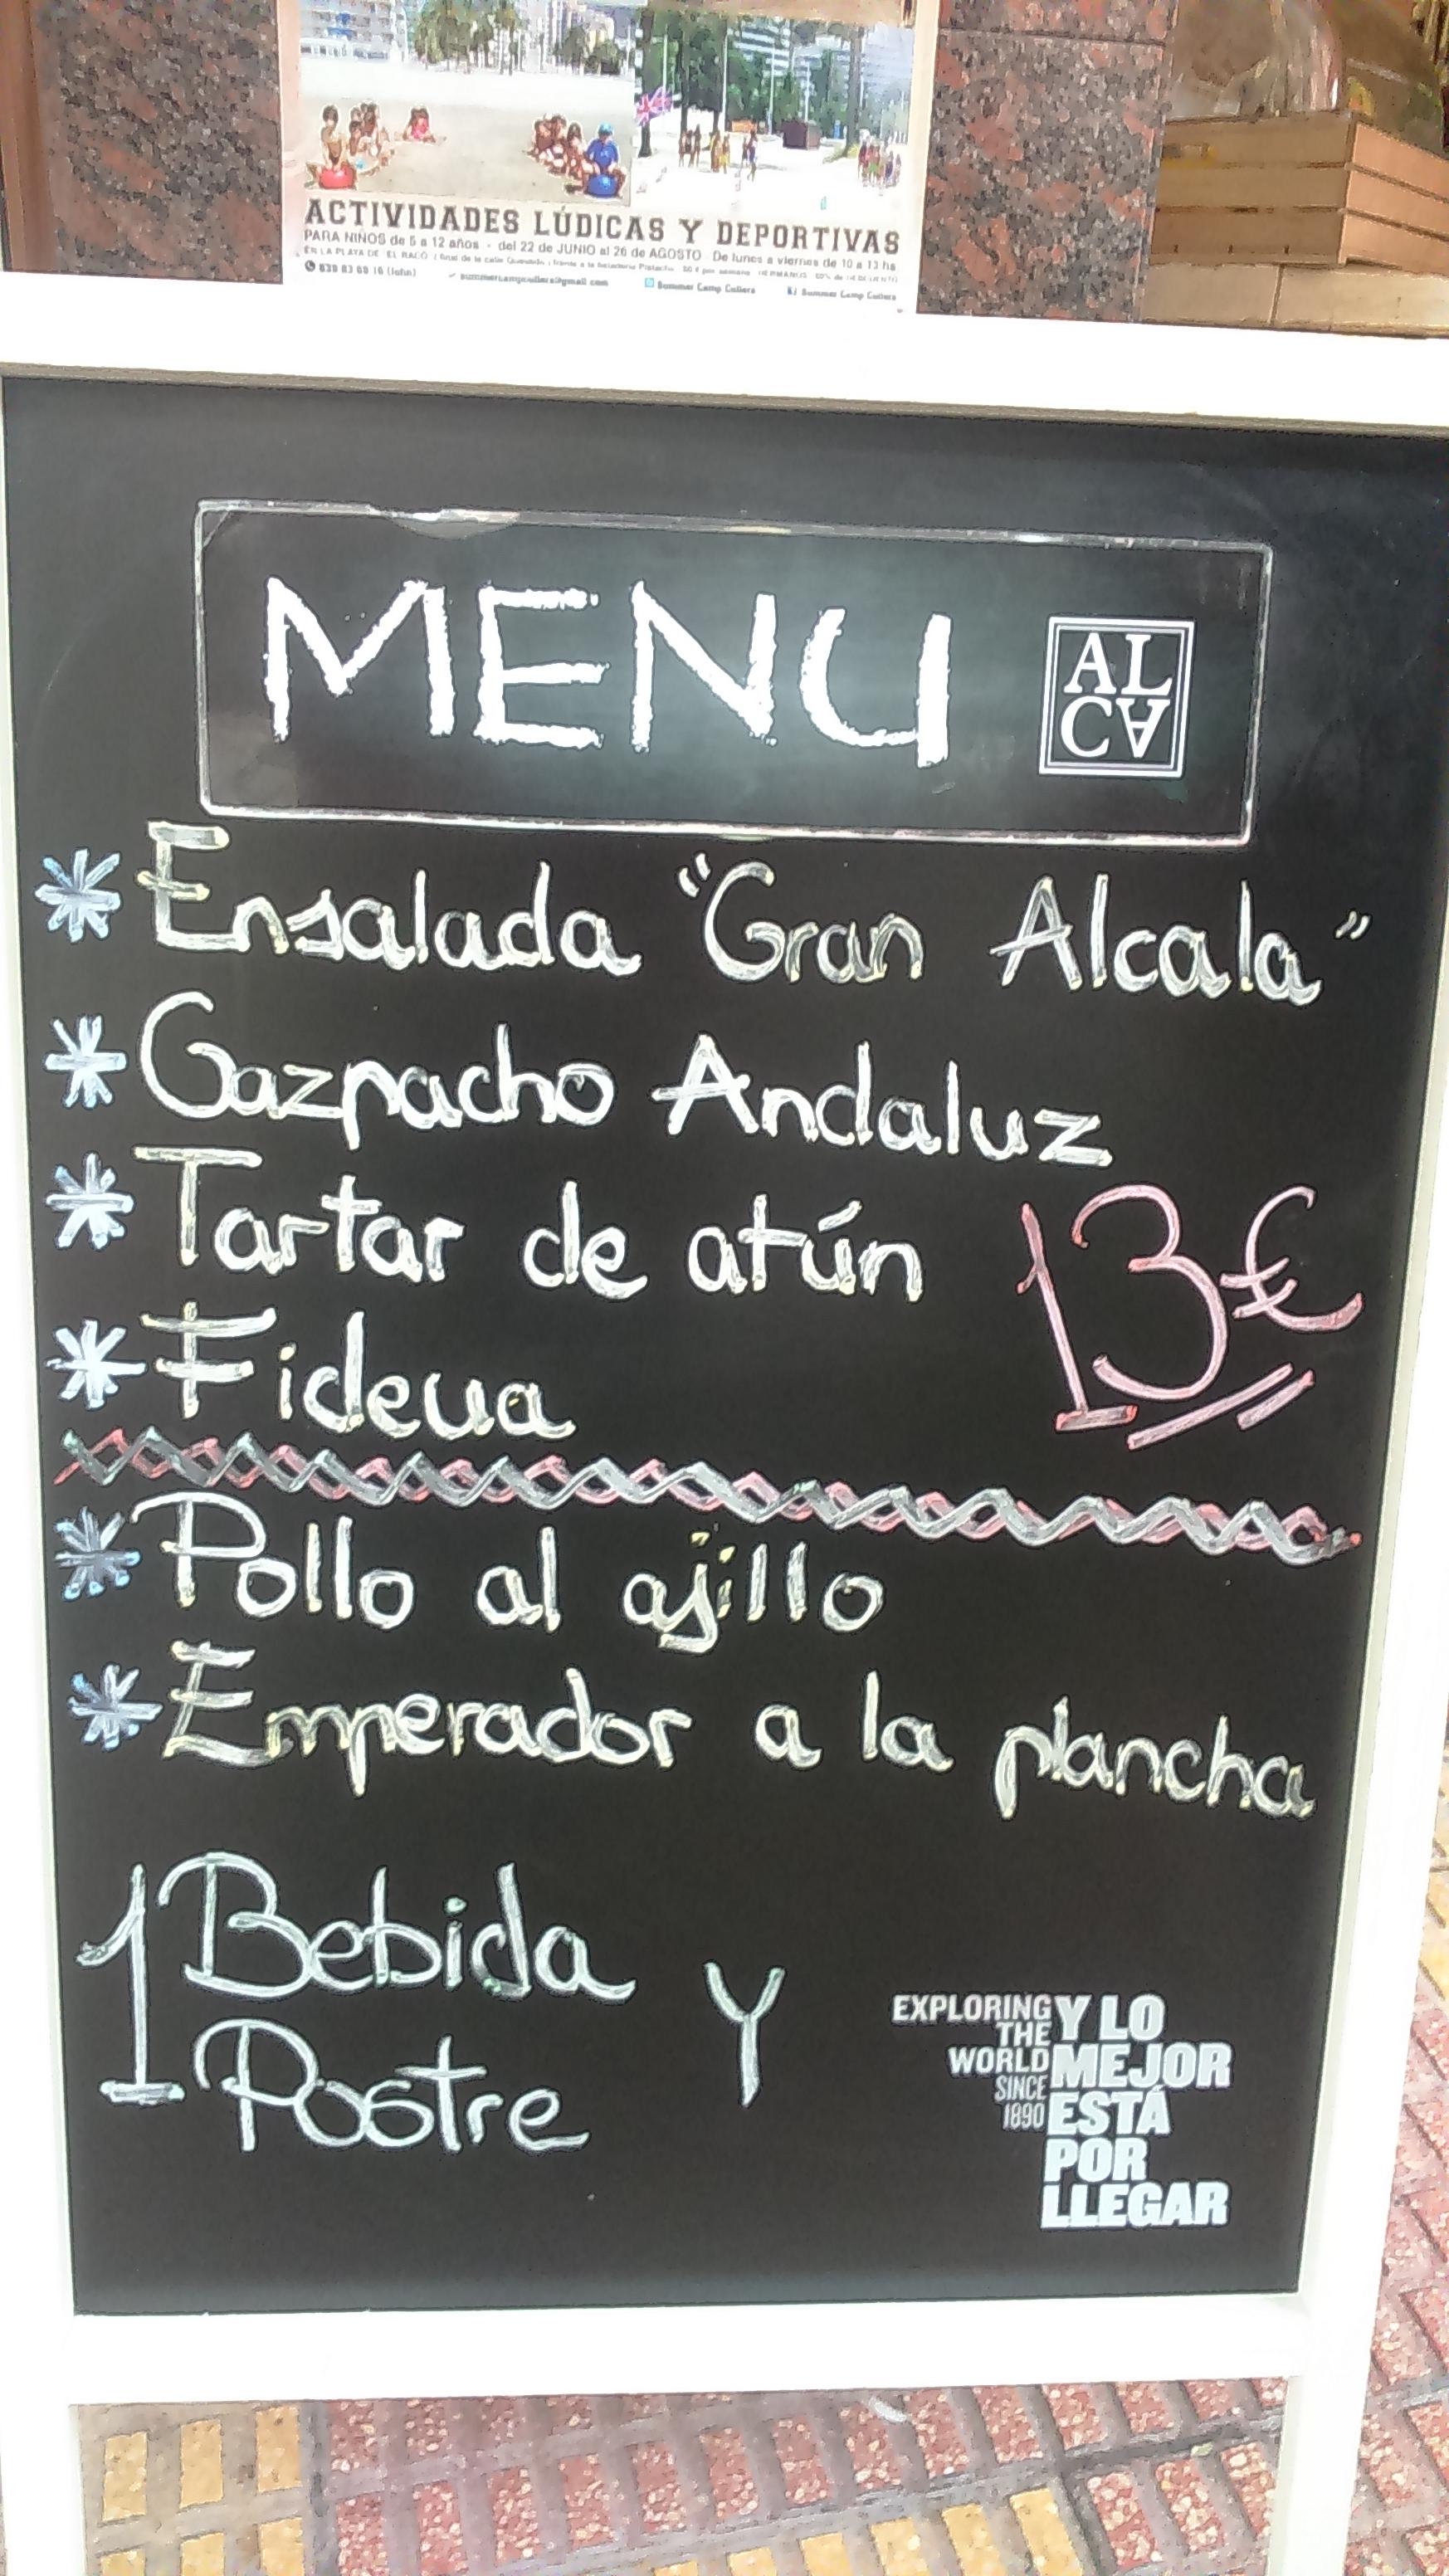 ACTIVIDADES LÚDICAS Y DEPORTIVAS
PARA NIÑOS de 5 a 12 años - del 22 de JUNIO al 26 de AGOSTO De lunes a viernes de 10 a 13 hs
EN LA PLAYA DE EL RACÓ
summercampcullera@gmail.com Summer Camp Cullera Summer Camp Cullera
MENU
AL
CA
* Ensalada "Gran Alcala"
* Gazpacho Andaluz
* Tartar de atún
13€
* Fideua
* Pollo al ajillo
* Emperador a la plancha
1 Bebida y
Postre
EXPLORING
THE
WORLD
SINCE
1890
Y LO
MEJOR
ESTÁ
POR
LLEGAR